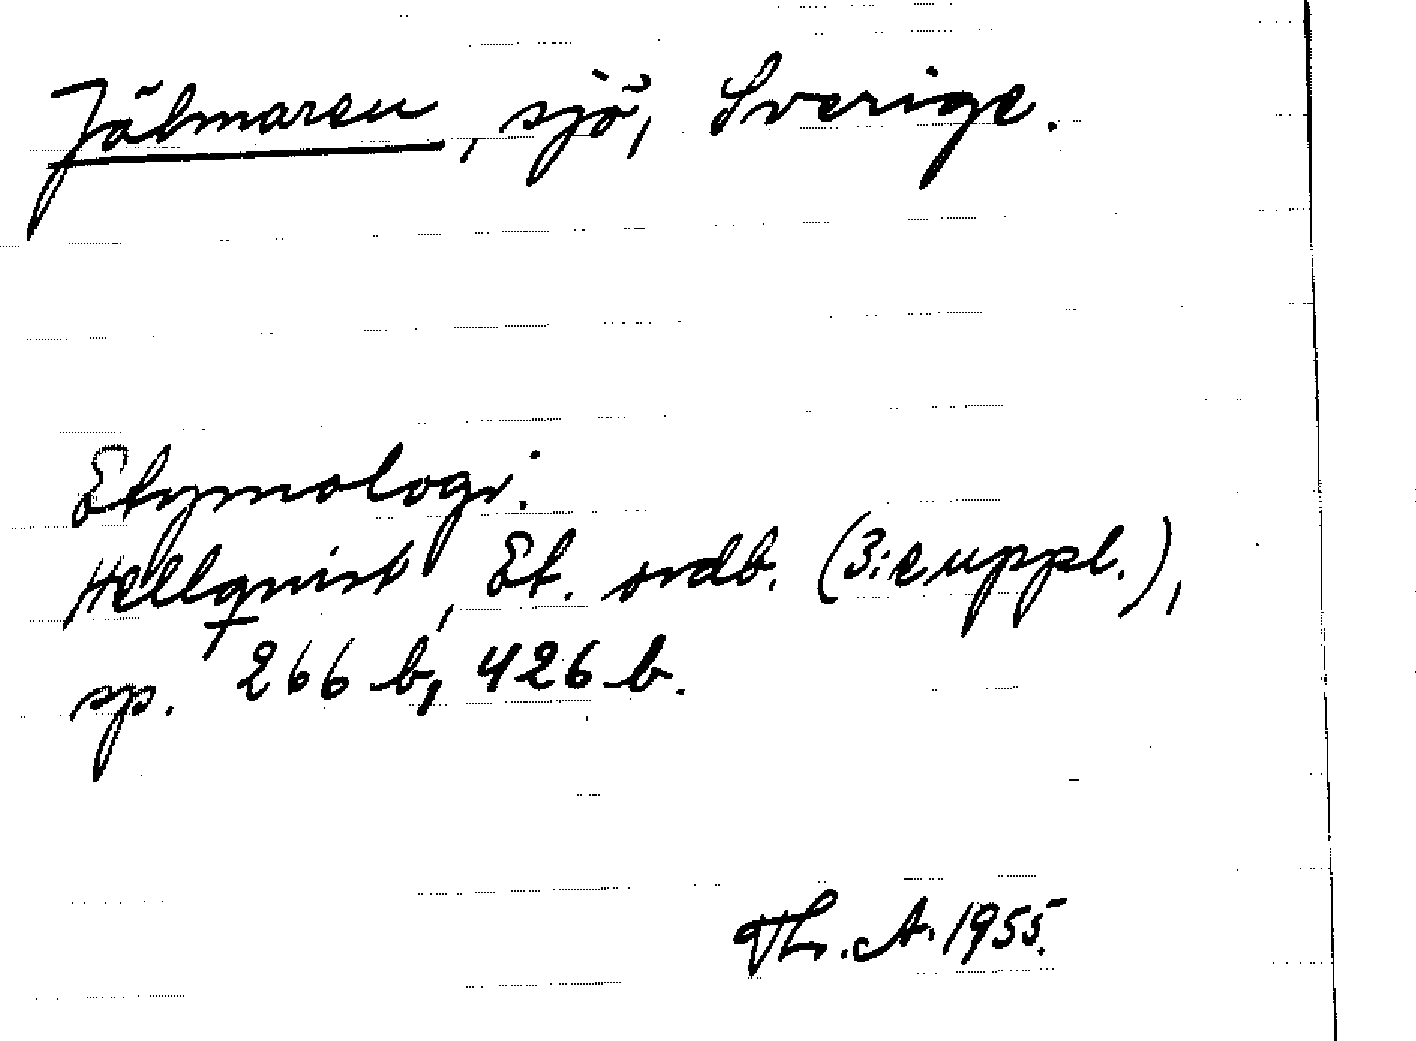 Jälmaren, sjö, Sverige.
Etymologi.
Hellquist, Et. ordb. (3:e uppl.),
sp. 266 b, 426 b.
Th. A. 1955.